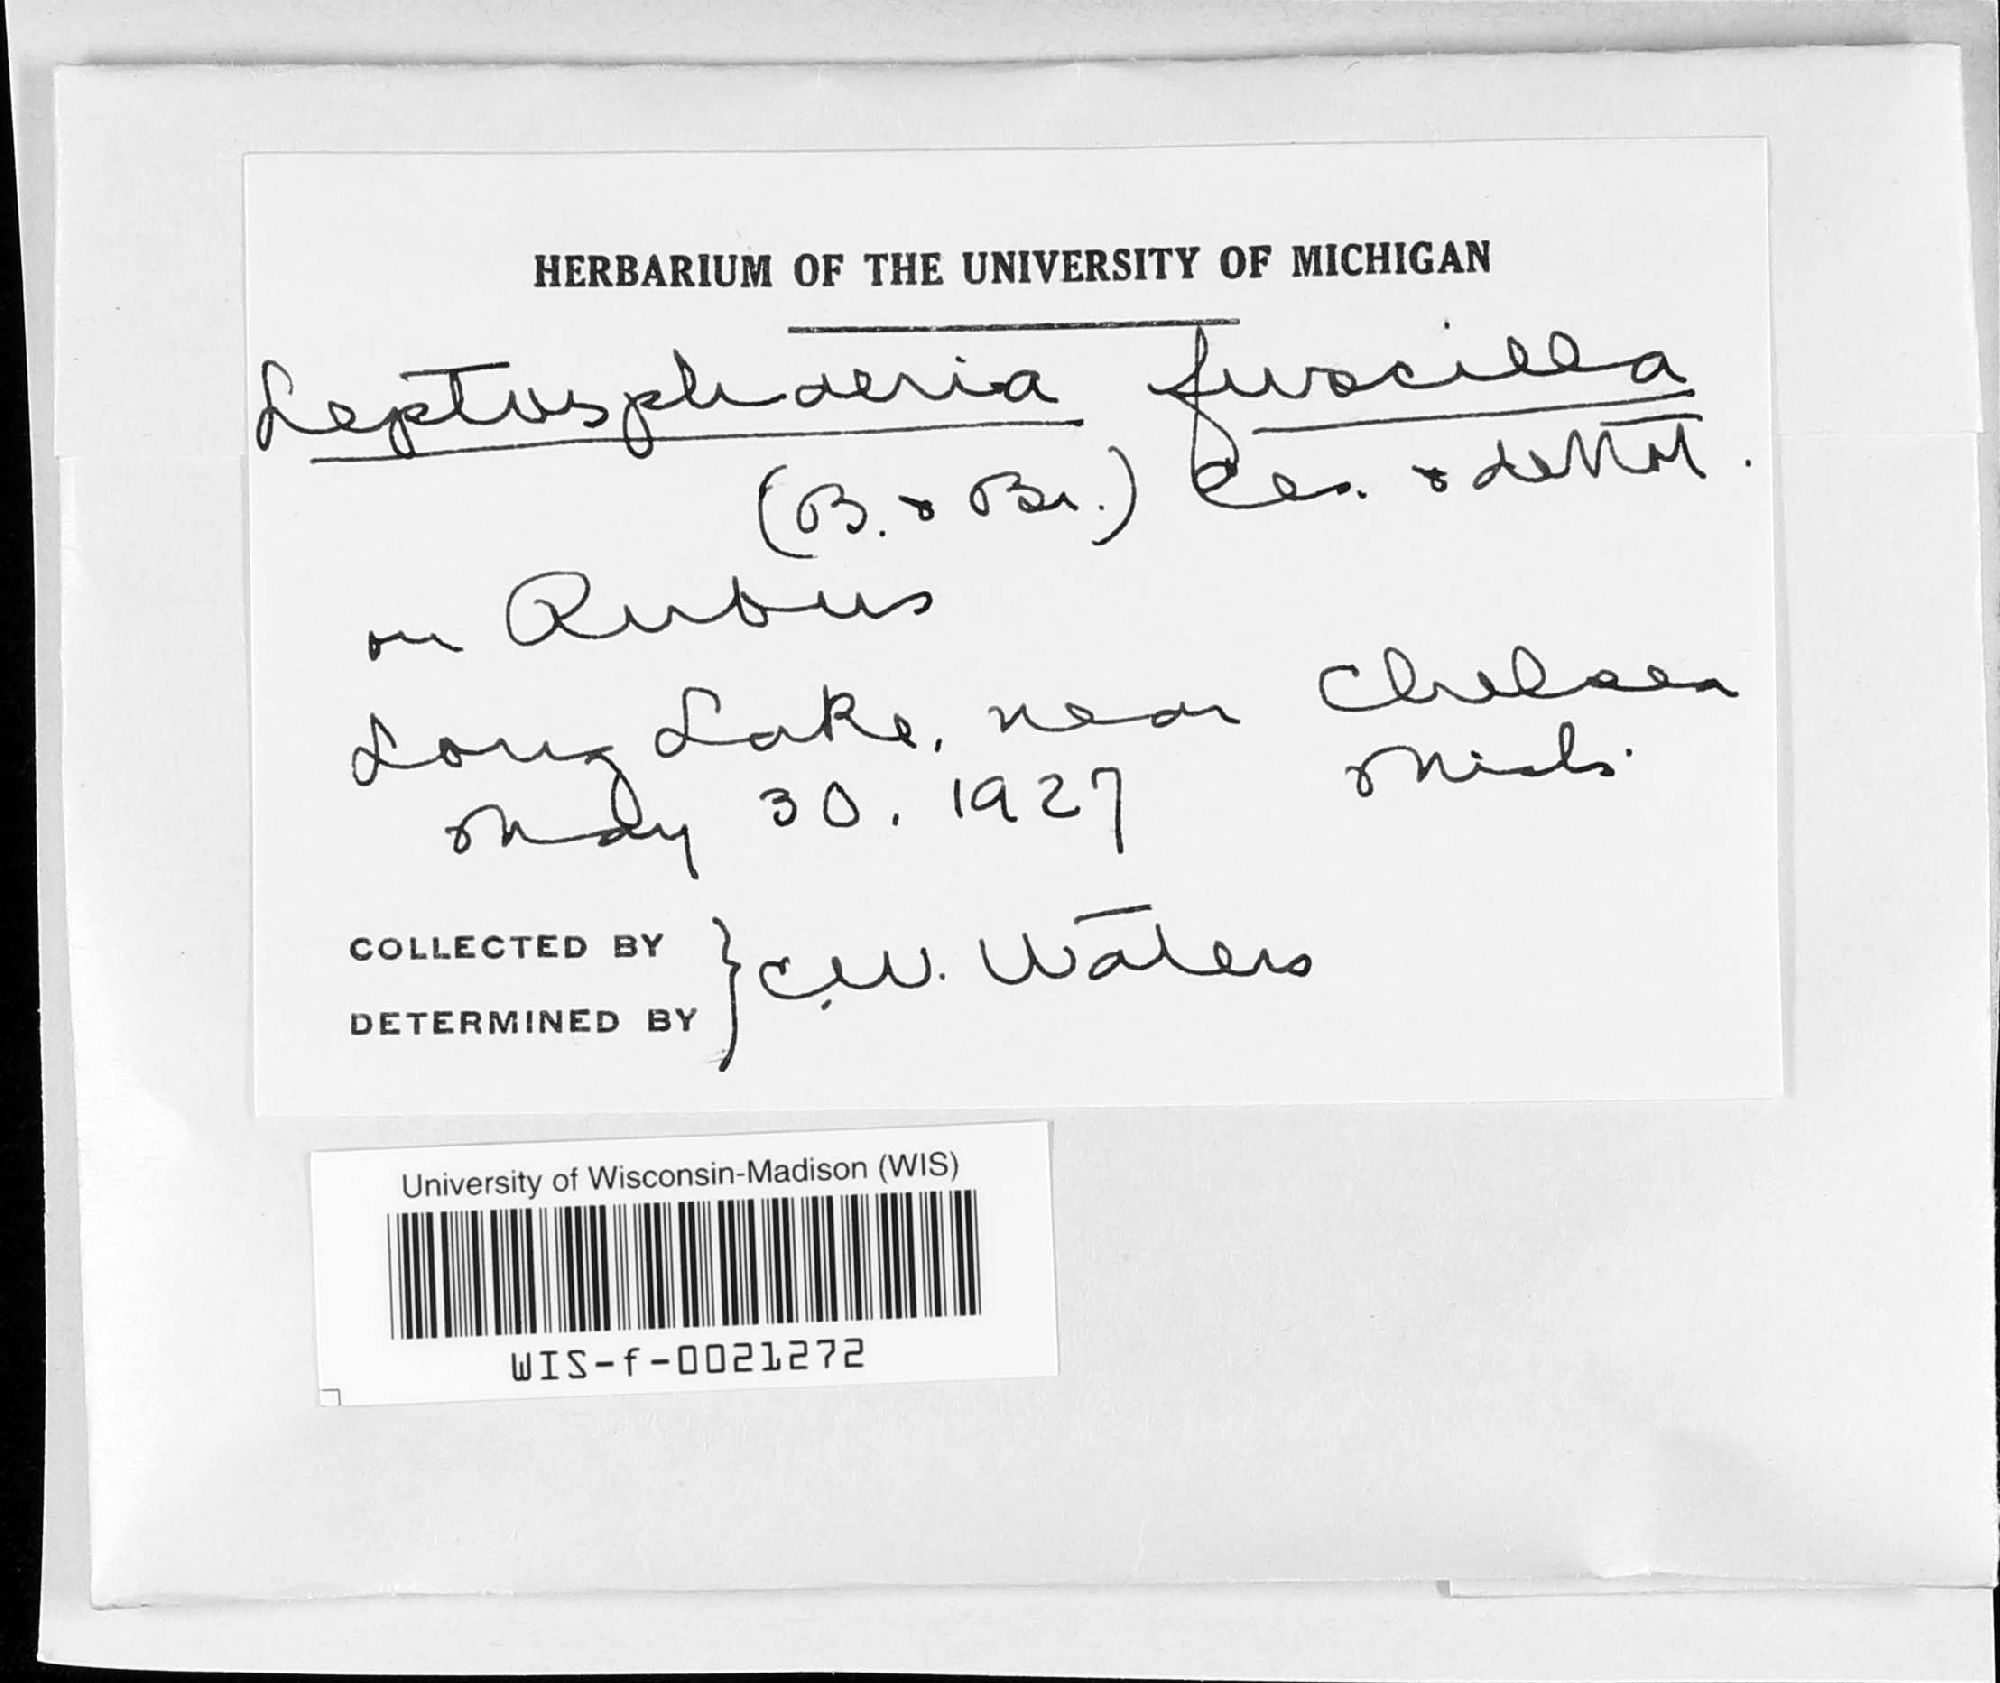 HERBARIUM OF THE UNIVERSITY OF MICHIGAN
Leptosphaeria fuscella
(B. & Br.) Ces. & deNot.
on Rubus
Long Lake, near Chelsea
Mich.
May 30, 1927
COLLECTED BY
DETERMINED BY } C.W. Waters
University of Wisconsin-Madison (WIS)
WIS-f-0021272